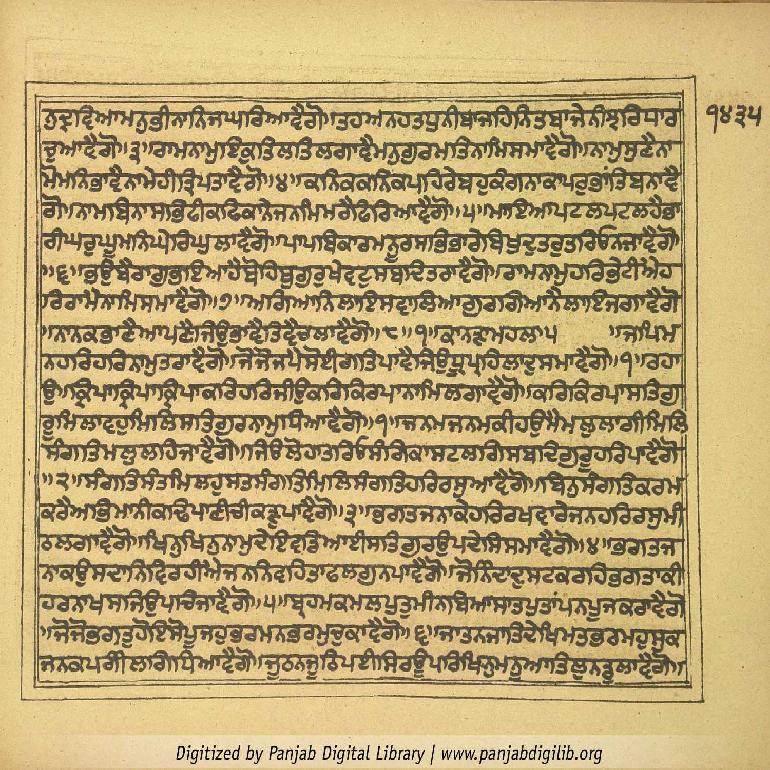 ਨੁਦ੍ਰਵਿਆਮਨੁਭੀਨਾਨਿਜਘਰਿਆਵੈਗੋ॥ਤਹਅਨਹਤਧੁਨੀਬਾਜਹਿਨਿਤਬਾਜੇਨੀਝਰਿਧਾਰ
ਚੁਆਵੈਗੋ॥੩॥ਰਾਮਨਾਮੁਇਕੁਤਿਲਤਿਲਗਾਵੈਮਨੁਗੁਰਮਤਿਨਾਮਿਸਮਾਵੈਗੋ॥ਨਾਮੁਸੁਣੈਨਾ
ਮੋਮਨਿਭਾਵੈਨਾਮੇਹੀਤ੍ਰਿਪਤਾਵੈਗੋ॥੪॥ਕਨਿਕਕਨਿਕਪਹਿਰੇਬਹੁਕੰਗਨਾਕਾਪਰੁਭਾਂਤਿਬਨਾਵੈ
ਗੋ॥ਨਾਮਬਿਨਾਸਭਿਫੀਕਫਿਕਾਨੇਜਨਮਿਮਰੈਫਿਰਿਆਵੈਗੋ॥੫॥ਮਾਇਆਪਟਲਪਟਲਹੈਭਾ
ਰੀਘਰੁਘੂਮਨਿਘੇਰਿਘੁਲਾਵੈਗੋ॥ਪਾਪਬਿਕਾਰਮਨੂਰਸਭਿਭਾਰੇਬਿਖੁਦੁਤਰੁਤਰਿਓਨਜਾਵੈਗੋ
॥੬॥ਭਉਬੈਰਾਗੁਭਇਆਹੈਬੋਹਿਥੁਗੁਰੁਖੇਵਟੁਸਬਦਿਤਰਾਵੈਗੋ॥ਰਾਮਨਾਮੁਹਰਿਭੇਟੀਐਹ
ਰਿਰਾਮੈਨਾਮਿਸਮਾਵੈਗੋ॥੭॥ਅਗਿਆਨਿਲਾਇਸਵਾਲਿਆਗੁਰਗਿਆਨੈਲਾਇਜਗਾਵੈਗੋ
॥ਨਾਨਕਭਾਣੈਆਪਣੈਜਿਉਭਾਵੈਤਿਵੈਚਲਾਵੈਗੋ॥੮॥੧॥ਕਾਨੜਾਮਹਲਾ੫ ॥ਜਪਿਮ
ਨਹਰਿਹਰਿਨਾਮੁਤਰਾਵੈਗੋ॥ਜੋਜੋਜਪੈਸੋਈਗਤਿਪਾਵੈਜਿਉਧ੍ਰੂਪ੍ਰਹਿਲਾਦੁਸਮਾਵੈਗੋ॥੧॥ਰਹਾ
ਉ॥ਕ੍ਰਿਪਾਕ੍ਰਿਪਾਕ੍ਰਿਪਾਕਰਿਹਰਿਜੀਉਕਰਿਕਿਰਪਾਨਾਮਿਲਗਾਵੈਗੋ॥ਕਰਿਕਿਰਪਾਸਤਿਗੁ
ਰੂਮਿਲਾਵਹੁਮਿਲਿਸਤਿਗੁਰਨਾਮੁਧਿਆਵੈਗੋ॥੧॥ਜਨਮਜਨਮਕੀਹਉਮੈਮਲੁਲਾਗੀਮਿਲਿ
ਸੰਗਤਿਮਲੁਲਹਿਜਾਵੈਗੋ॥ਜਿਉਲੋਹਾਤਰਿਓਸੰਗਿਕਾਸਟਲਗਿਸਬਦਿਗੁਰੂਹਰਿਪਾਵੈਗੋ
॥੨॥ਸੰਗਤਿਸੰਤਮਿਲਹੁਸਤਸੰਗਤਿਮਿਲਿਸੰਗਤਿਹਰਿਰਸੁਆਵੈਗੋ॥ਬਿਨੁਸੰਗਤਿਕਰਮ
ਕਰੈਅਭਿਮਾਨੀਕਢਿਪਾਣੀਚੀਕੜੁਪਾਵੈਗੋ॥੩॥ਭਗਤਜਨਾਕੇਹਰਿਰਖਵਾਰੇਜਨਹਰਿਰਸੁਮੀ
ਠਲਗਾਵੈਗੋ॥ਖਿਨੁਖਿਨੁਨਾਮੁਦੇਇਵਡਿਆਈਸਤਿਗੁਰਉਪਦੇਸਿਸਮਾਵੈਗੋ॥੪॥ਭਗਤਜ
ਨਾਕਉਸਦਾਨਿਵਿਰਹੀਐਜਨਨਿਵਹਿਤਾਫਲਗੁਨਪਾਵੈਗੋ॥ਜੋਨਿੰਦਾਦੁਸਟਕਰਹਿਭਗਤਾਕੀ
ਹਰਨਾਖਸਜਿਉਪਚਿਜਾਵੈਗੋ॥੫॥ਬ੍ਰਹਮਕਮਲਪੁਤੁਮੀਨਬਿਆਸਾਤਪੁਤਾਪਨਪੂਜਕਰਾਵੈਗੋ
॥ਜੋਜੋਭਗਤੁਹੋਇਸੋਪੂਜਹੁਭਰਮਨਭਰਮੁਚੁਕਾਵੈਗੋ॥੬॥ਜਾਤਨਜਾਤਿਦੇਖਿਮਤਭਰਮਹੁਸੁਕ
ਜਨਕਪਗੀਂਲਗਿਧਿਆਵੈਗੋ॥ਜੂਠਨਜੂਠਿਪਈਸਿਰਊਪਰਿਖਿਨੁਮਨੂਆਤਿਲੁਨਡੁਲਾਵੈਗੋ॥
੧੪੩੫
Digitized by Panjab Digital Library | www.panjabdigilib.org